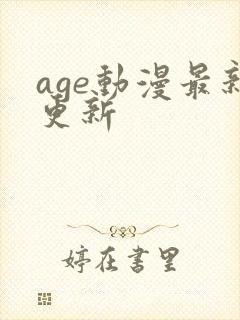 age動漫最新
更新
婷在書里